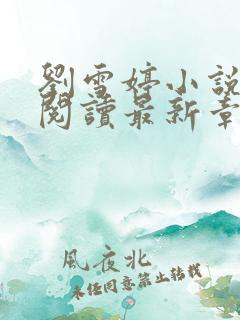 劉雪婷小說
閱讀最新章
風夜北
未經同意禁止轉載